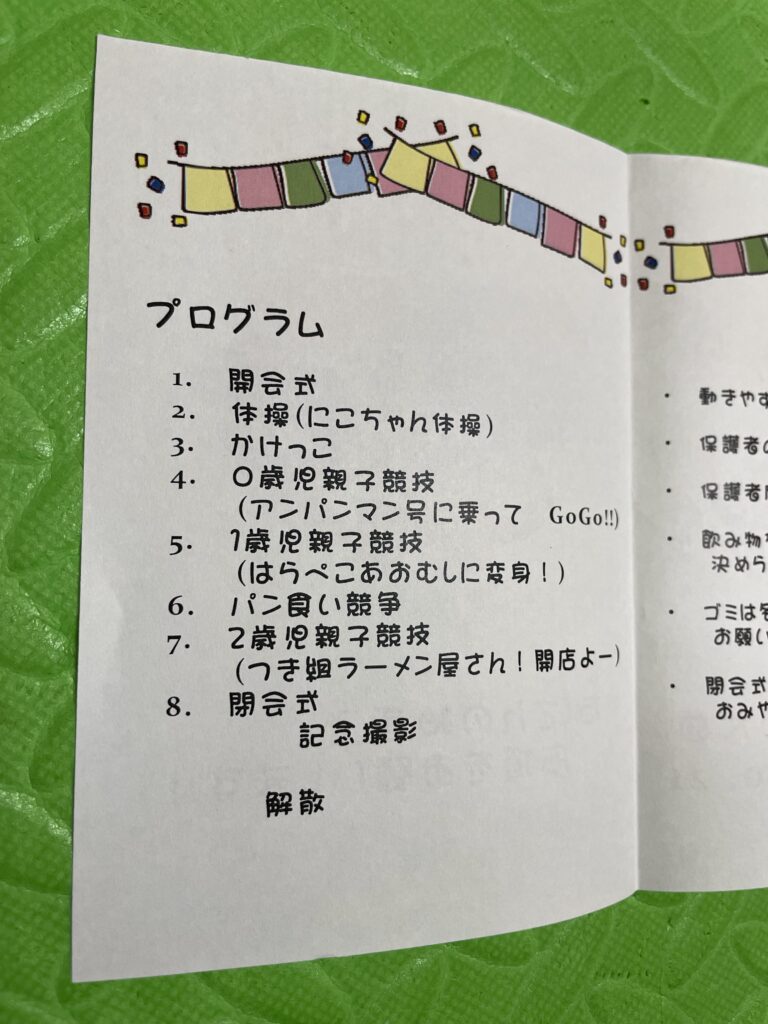 プログラム
1. 開会式
2. 体操(にこちゃん体操)
3. かけっこ
4. 0歳児親子競技
(アンパンマン号に乗って　GoGo!!)
5. 1歳児親子競技
(はらぺこあおむしに変身！)
6. パン食い競争
7. 2歳児親子競技
(つき組ラーメン屋さん！開店よー)
8. 閉会式
記念撮影
解散
・ 動きやす
・ 保護者の
・ 保護者
・ 飲み物
決めら
・ ゴミは
お願い
・ 閉会式
おみや